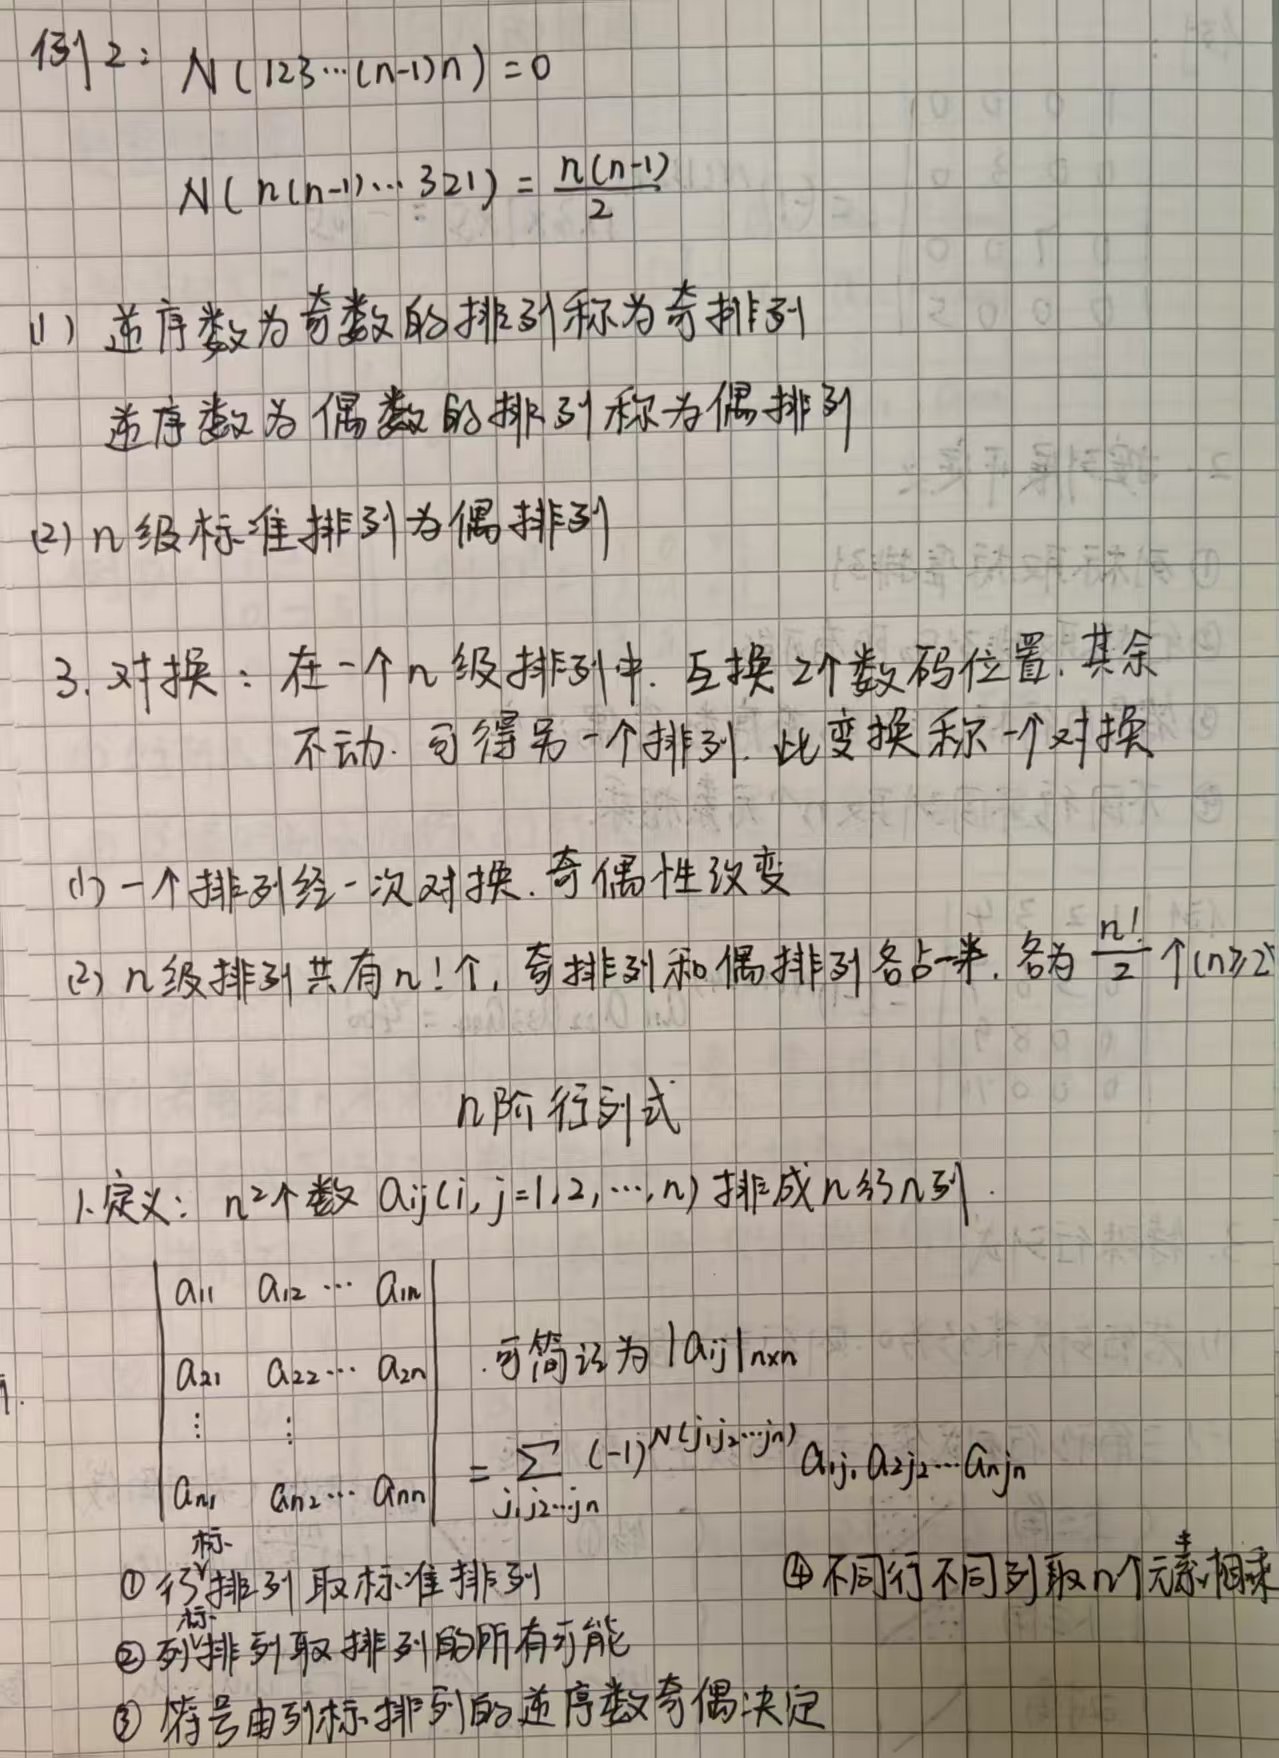 例2: N(123…(n-1)n)=0
N(n(n-1)…321)=\frac{n(n-1)}{2}
(1) 逆序数为奇数的排列称为奇排列
逆序数为偶数的排列称为偶排列
(2) n级标准排列为偶排列
3. 对换: 在一个n级排列中.互换2个数码位置.其余
不动.可得另一个排列.此变换称一个对换
(1) 一个排列经一次对换.奇偶性改变
(2) n级排列共有n!个,奇排列和偶排列各占一半.各为\frac{n!}{2}个(n≥2)
n阶行列式
1.定义: n²个数 aij(i,j=1,2,…,n)排成n行n列.
a11 a12 … a1n
a21 a22 … a2n .可简记为|aij|n×n
⋮ ⋮
an1 an2 … ann = \sum_{j1j2…jn} (-1)^{N(j1j2…jn)} a1j1 a2j2…anjn
①行标排列取标准排列 ④不同行不同列取n个元素相乘
②列标排列取排列的所有可能
③符号由列标排列的逆序数奇偶决定